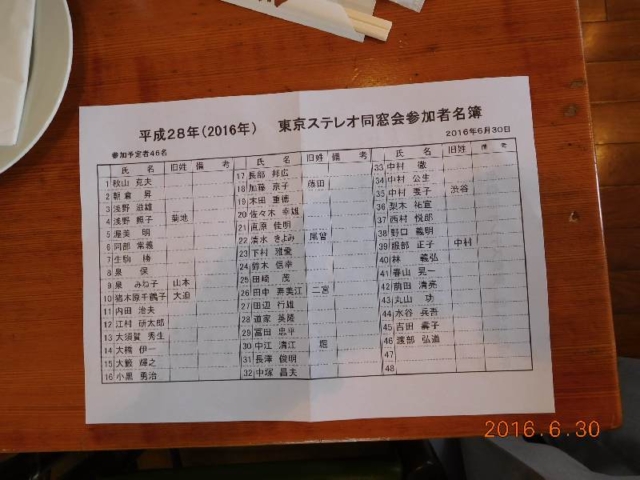 平成28年(2016年)　東京ステレオ同窓会参加者名簿
2016年6月30日
参加予定者46名
氏　名　旧姓　備　考
1 秋山 克夫
2 朝倉 昇
3 浅野 滋雄
4 浅野 頼子　菊地
5 渥美 明
6 阿部 常義
7 生駒 勝
8 泉 保
9 泉 みね子　山本
10 猪木原千鶴子　大迫
11 内田 治夫
12 江村 研太郎
13 大須賀 秀生
14 大橋 伊一
15 大藪 輝之
16 小黒 勇治
氏　名　旧姓　備　考
17 長部 邦広
18 加藤 京子　篠田
19 木田 重徳
20 佐々木 幸雄
21 佳明
22 清水 きよみ
23 下村 雅愛
24 鈴木 信幸
25 田崎 茂
26 田中 寿美江　二宮
27 田辺 行雄
28 道家 英隆
29 冨田 忠平
30 中江 清江　堀
31 長澤 俊明
32 中塚 昌夫
氏　名　旧姓　備　考
33 中村 徹
34 中村 公生
35 中村 美子　渋谷
36 梨木 祐宣
37 西村 悦郎
38 野口 義明
39 服部 正子　中村
40 林 義弘
41 春山 晃一
42 前田 清亮
43 丸山 功
44 水谷 兵吾
45 吉田 壽子
46 渡部 弘道
47
48
2016.6.30